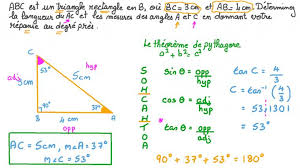 ABC est un triangle rectangle en B, où BC = 3cm et AB = 4cm. Déterminez
la longueur du AC et les mesures des angles A et C en donnant votre
réponse au degré près.
C
hyp
53°
adj
3cm
5cm
opp
90°
37°
B
4cm
A
opp
adj
AC = 5cm, m∠A = 37°
m∠C = 53°
Le théorème de pythagore
a² + b² = c²
SOHCAHTOA
sin θ = opp/hyp
cos θ = adj/hyp
tan θ = opp/adj
tan C = 4/3
C = tan⁻¹(4/3)
= 53,1301
= 53°
90° + 37° + 53° = 180°